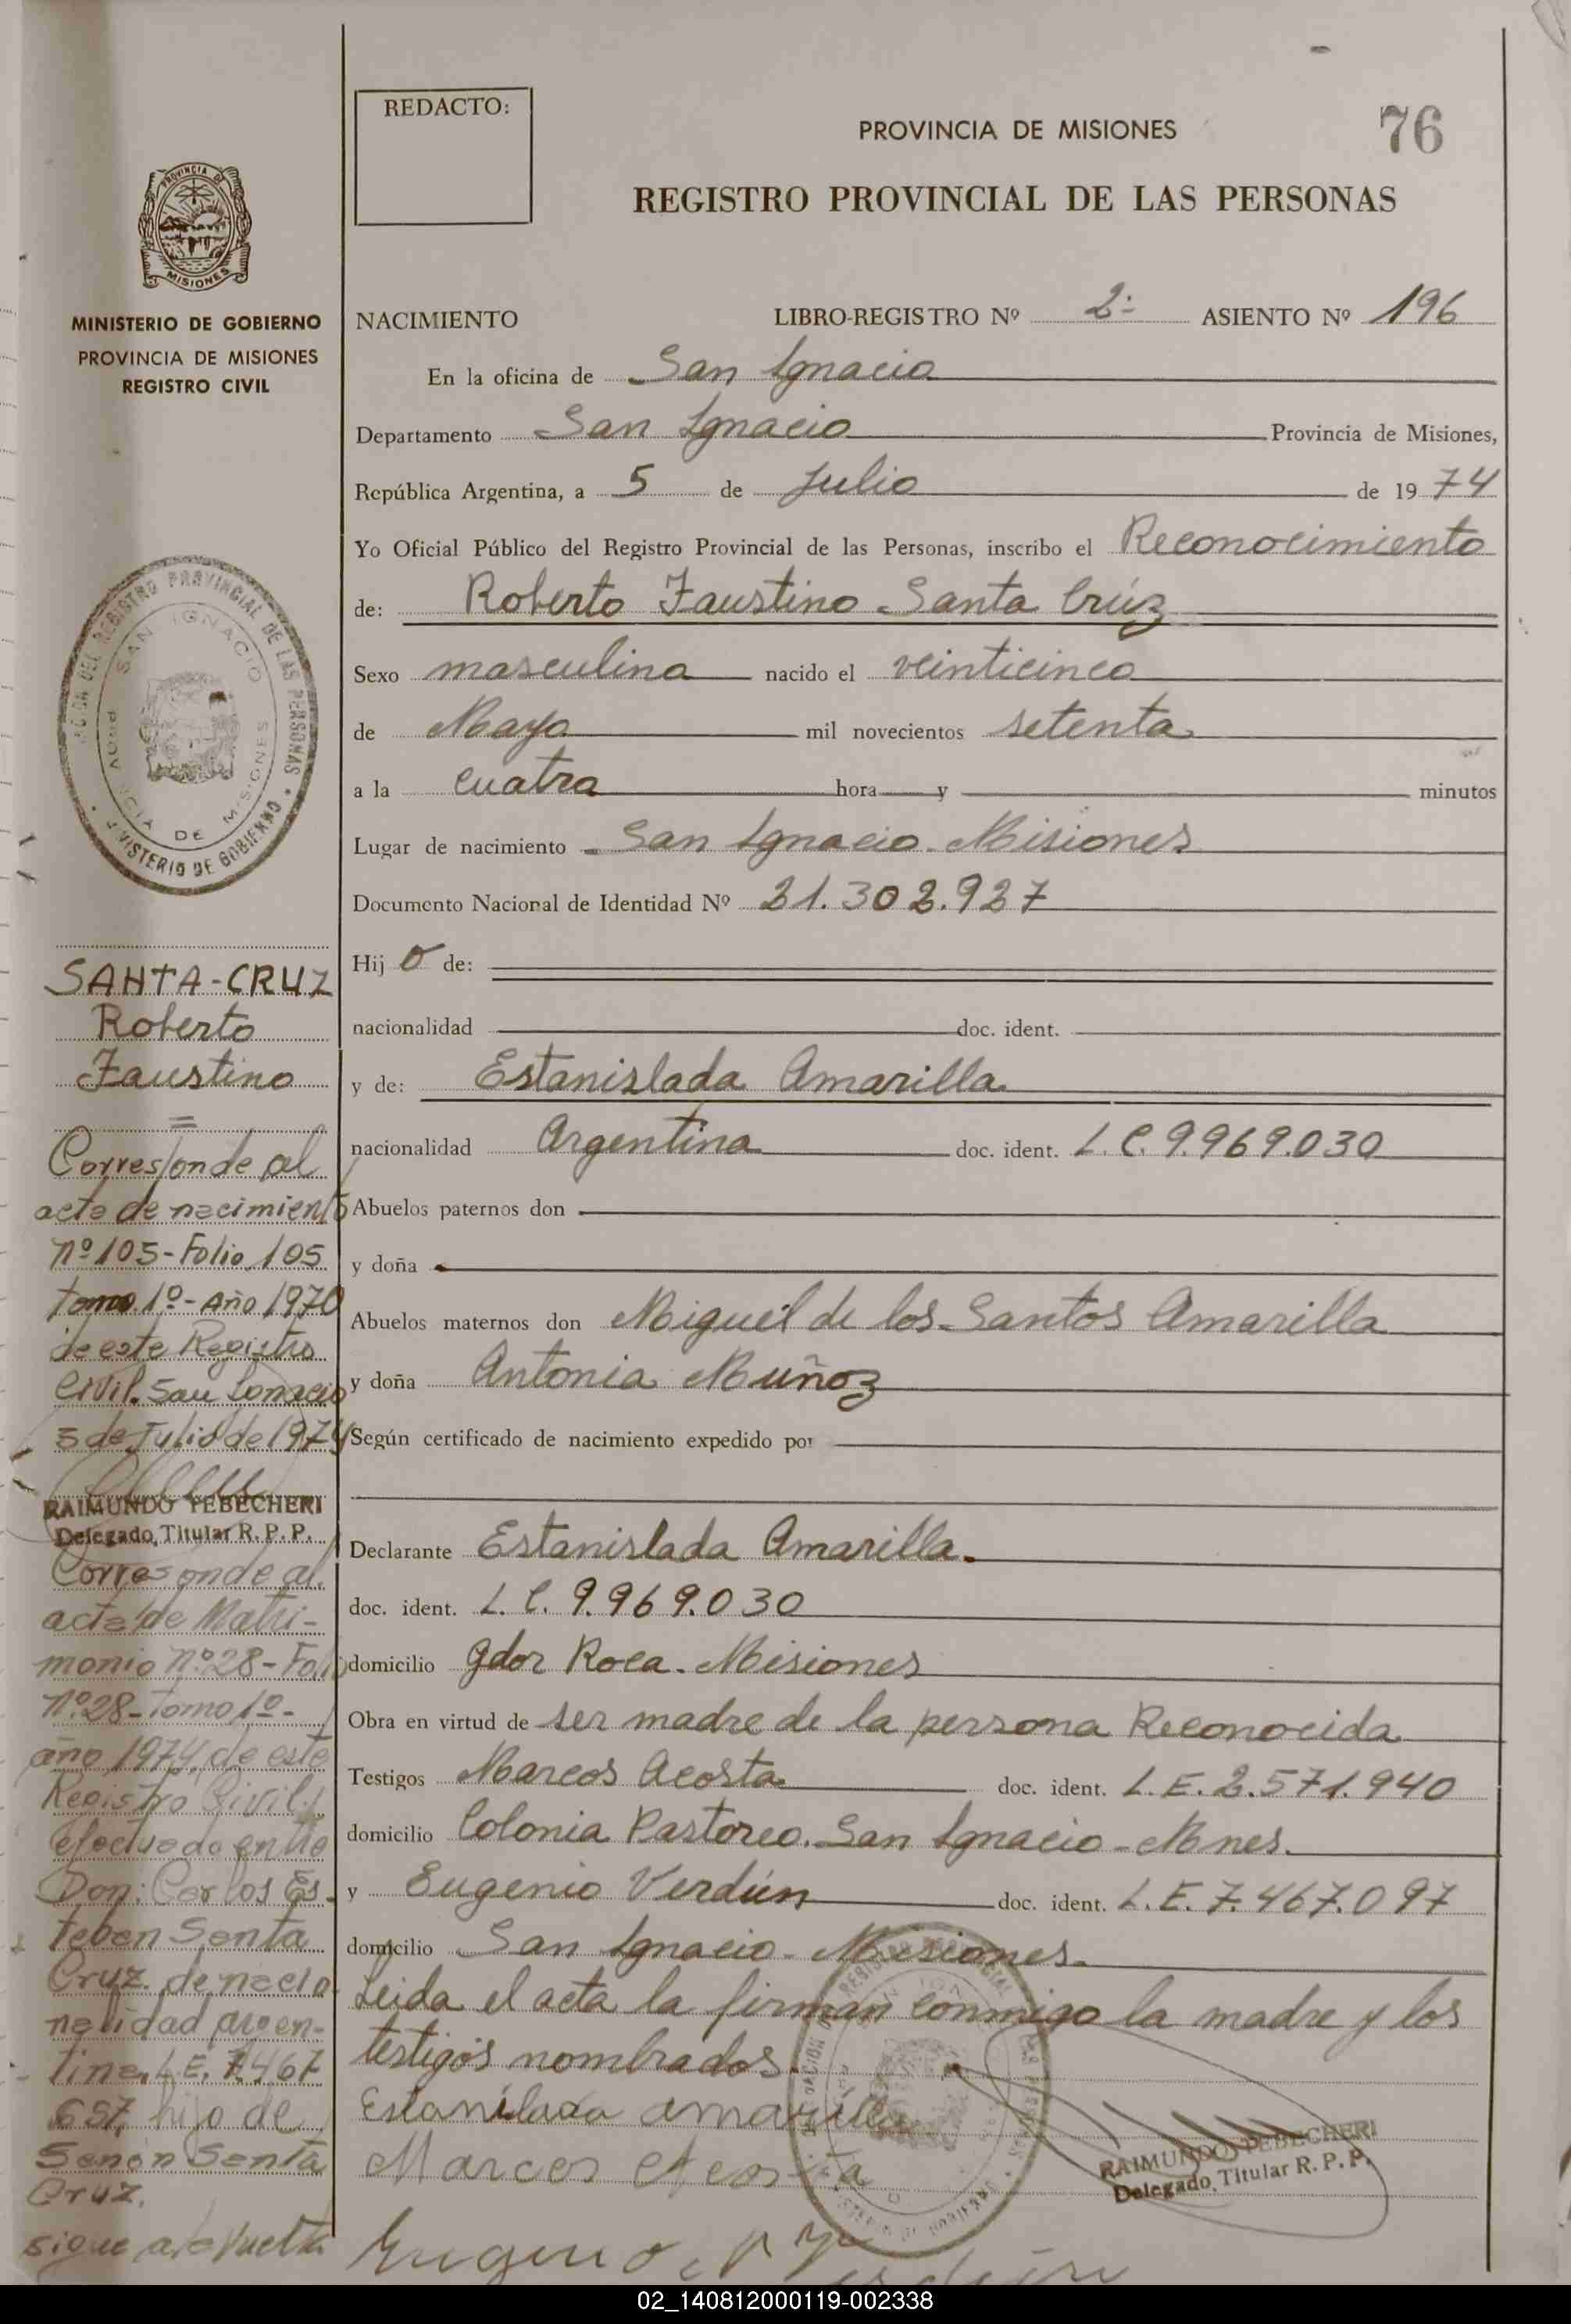 REDACTO:
PROVINCIA DE MISIONES
76
REGISTRO PROVINCIAL DE LAS PERSONAS
PROVINCIA DE
MISIONES
MINISTERIO DE GOBIERNO
PROVINCIA DE MISIONES
REGISTRO CIVIL
NACIMIENTO LIBRO-REGISTRO Nº 2º ASIENTO Nº 196
En la oficina de San Ignacio
Departamento San Ignacio Provincia de Misiones,
República Argentina, a 5 de Julio de 1974
Yo Oficial Público del Registro Provincial de las Personas, inscribo el Reconocimiento
de: Roberto Faustino Santa Crúz
Sexo masculino nacido el veinticinco
de Mayo mil novecientos setenta
a la cuatro hora y minutos
Lugar de nacimiento San Ignacio. Misiones
Documento Nacional de Identidad Nº 21.302.927
Hijo de:
nacionalidad doc. ident.
y de: Estanislada Amarilla
nacionalidad Argentina doc. ident. L.C. 9.969.030
Abuelos paternos don
y doña
Abuelos maternos don Miguel de los Santos Amarilla
y doña Antonia Muñoz
Según certificado de nacimiento expedido por
Declarante Estanislada Amarilla.
doc. ident. L.C. 9.969.030
domicilio Gdor Roca. Misiones
Obra en virtud de ser madre de la persona Reconocida
Testigos Marcos Acosta doc. ident. L.E. 2.571.940
domicilio Colonia Pastoreo. San Ignacio - Mnes.
y Eugenio Verdún doc. ident. L.E. 7.467.097
domicilio San Ignacio - Misiones.
Leida el acta la firman conmigo la madre y los
testigos nombrados.
Estanilada amarilla
Marcos Acosta
Eugenio
RAIMUNDO TEBECHERI
Delegado Titular R. P. P.
DEL REGISTRO PROVINCIAL DE LAS PERSONAS
SAN IGNACIO
PROVINCIA DE MISIONES
MINISTERIO DE GOBIERNO
SANTA-CRUZ
Roberto
Faustino
=
Corresponde al
acta de nacimiento
Nº 105 - Folio 105
tomo 1º - Año 1970
de este Registro
Civil. San Ignacio
5 de Julio de 1974
RAIMUNDO TEBECHERI
Delegado Titular R. P. P.
Corresponde al
acta de Matri-
monio nº 28 - Folio
Nº 28 - Tomo 1º -
año 1974, de este
Registro Civil,
efectuado entre
Don: Carlos Es-
teban Santa
Cruz, de nacio-
nalidad argen-
tina, L.E. 7.467
657, hijo de
Senón Santa
Cruz.
sigue a la vuelta
02_140812000119-002338